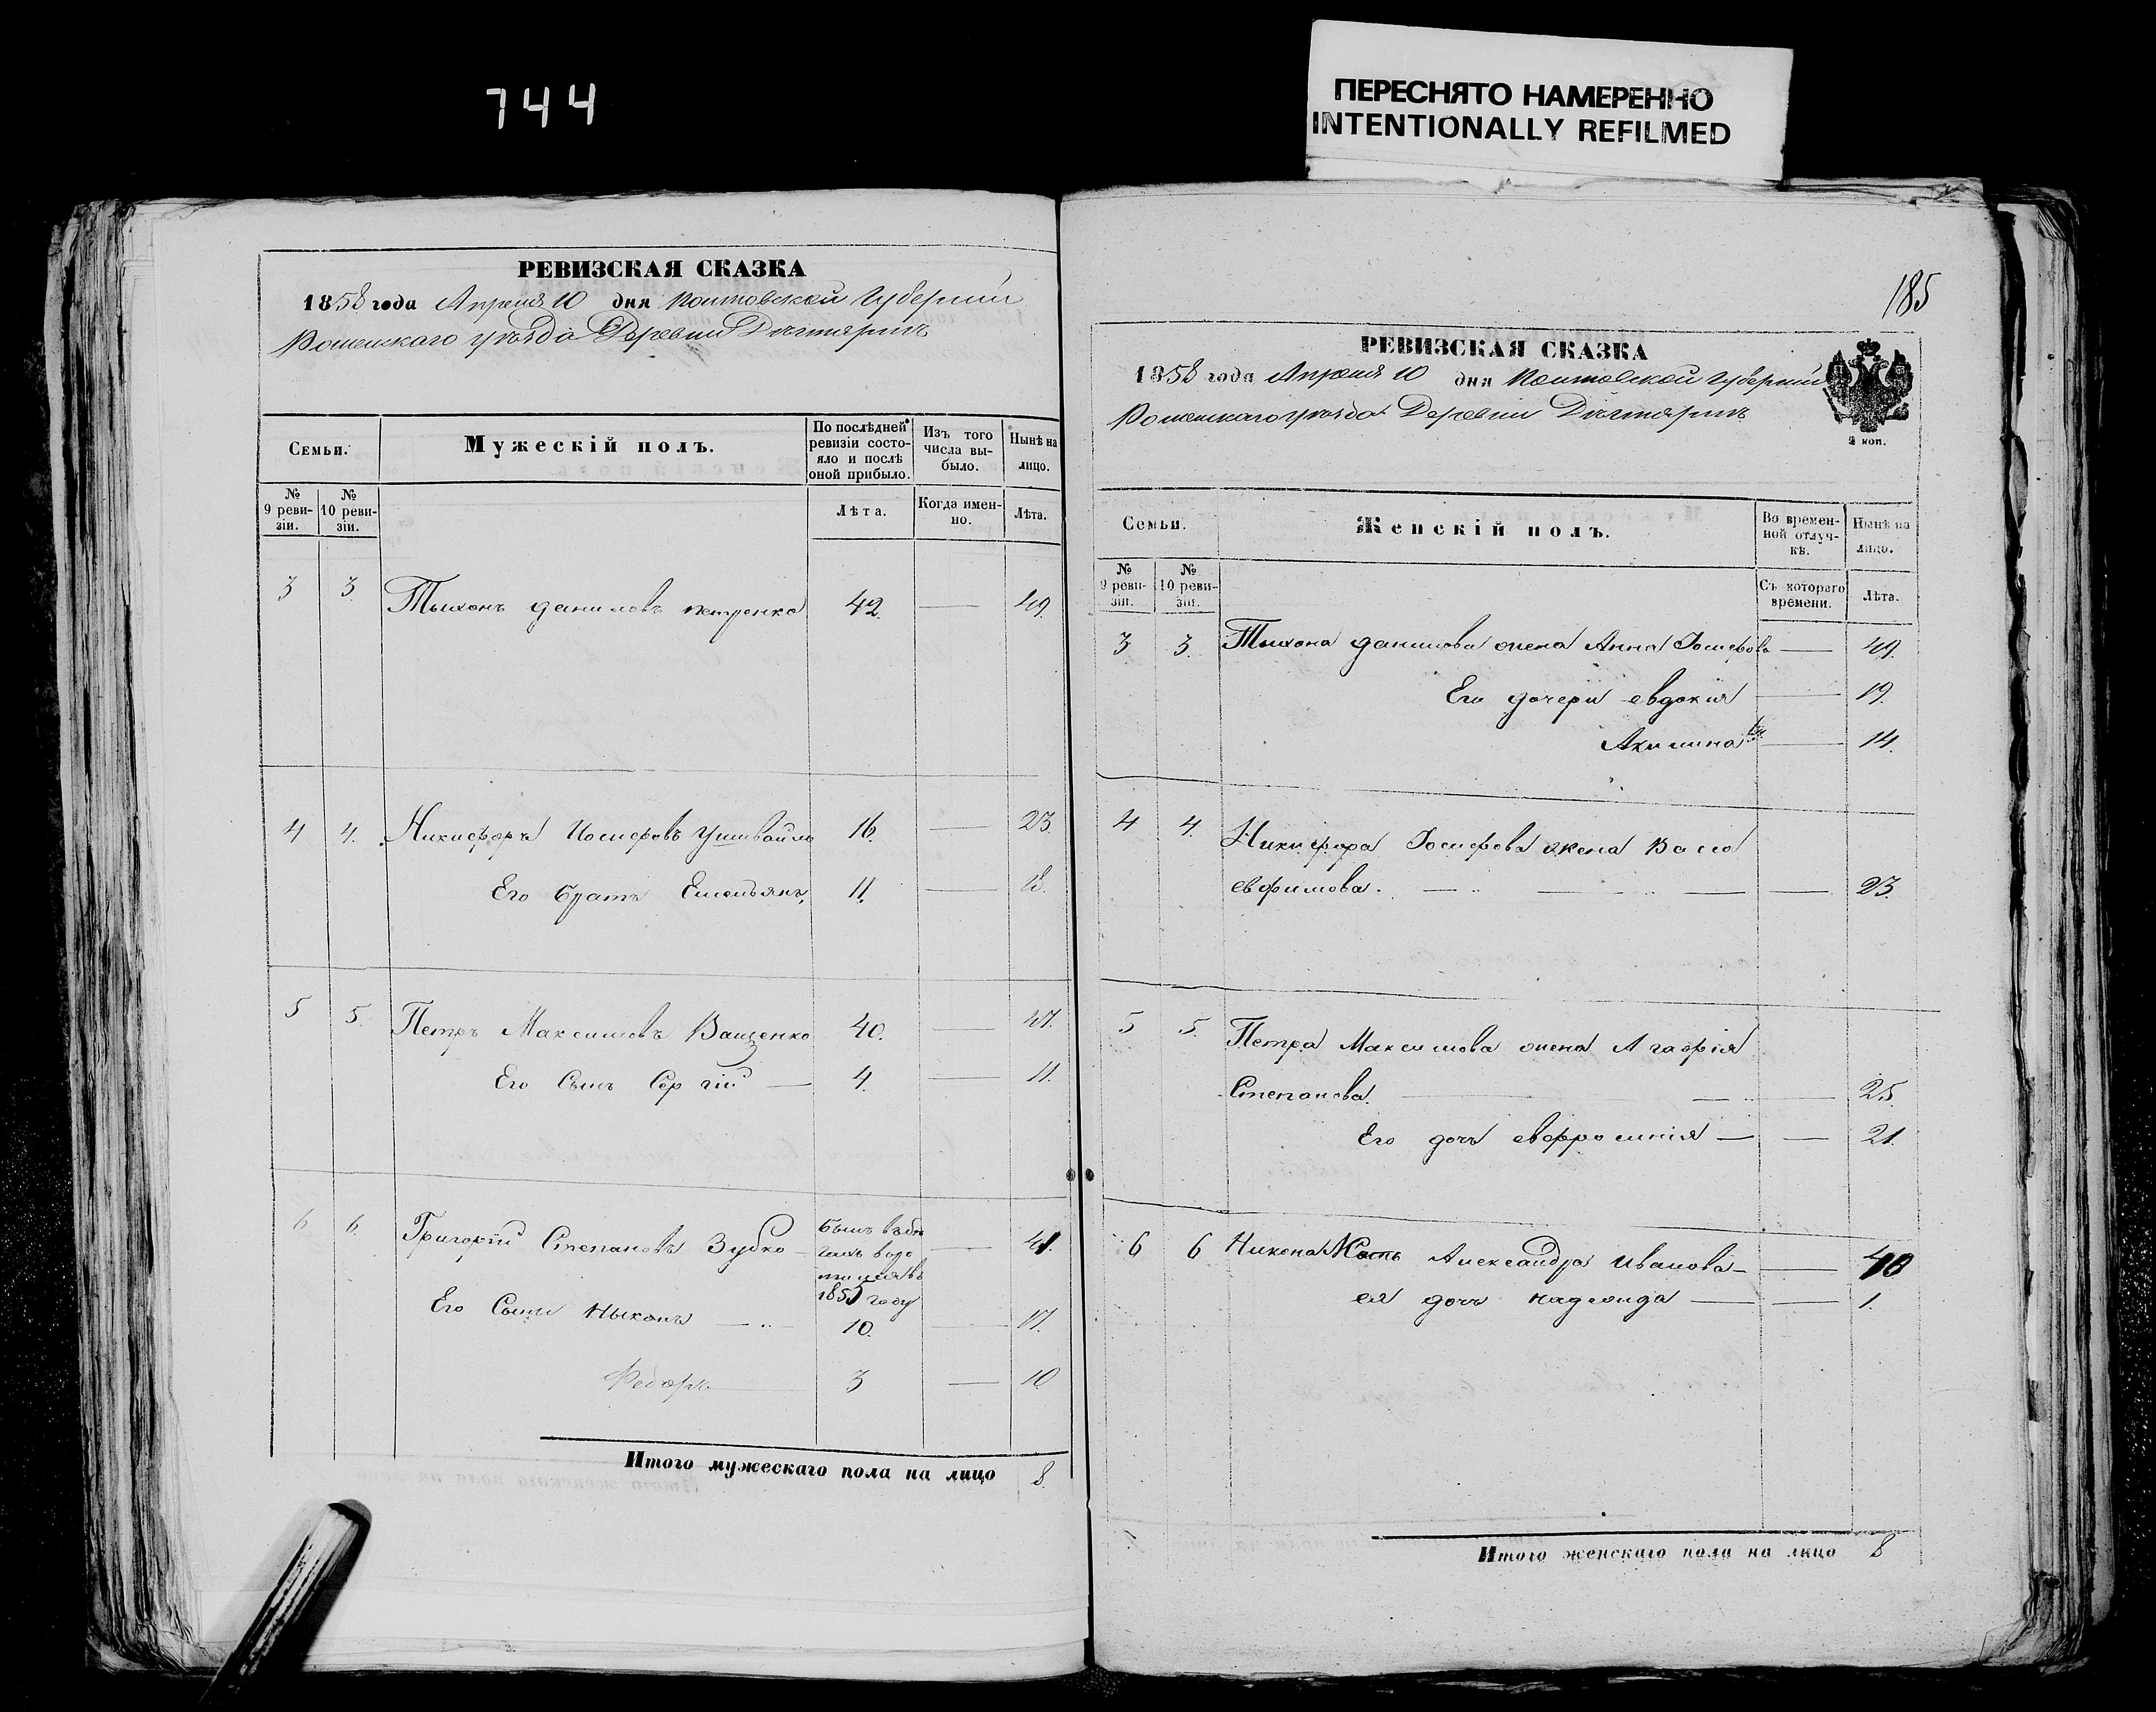 744
ПЕРЕСНЯТО НАМЕРЕННО
INTENTIONALLY REFILMED
РЕВИЗСКАЯ СКАЗКА
1858 года Апреля 10 дня Полтавской Губернии
Роменскаго уѣзда Деревни
Семьи.
Мужескій полъ.
По послѣдней ревизіи состояло и послѣ оной прибыло.
Изъ того числа выбыло.
Нынѣ на лицо.
№ 9 ревизіи.
№ 10 ревизіи.
Лѣта.
Когда именно.
Лѣта.
3 3. Тыхонъ Даниловъ Петренко 42. 49.
4 4. Никифоръ Иосифовъ 16. 23.
Его братъ Емельянъ, 11. 18.
5 5. Петръ Максимовъ Ващенко 40. 47.
Его Сынъ Сергій 4. 11.
6 6. Григорій Степановъ Зубко 41.
1855 году
Его Сыны Ныконъ 10. 17.
Федоръ 3 10
Итого мужескаго пола на лицо 8.
185
РЕВИЗСКАЯ СКАЗКА
1858 года Апреля 10 дня Полтавской Губернии
Роменскаго уѣзда Деревни
2 коп.
Семьи.
Женскій полъ.
Во временной отлучкѣ.
Нынѣ на лицо.
№ 9 ревизіи.
№ 10 ревизіи.
Съ котораго времени.
Лѣта.
3 3. Тыхона Данилова жена Анна Иосифова 49.
Его дочери Евдокия 19.
Акилина 14.
4 4. Никифора Иосифова жена Васса
Евфимова. 23.
5 5. Петра Максимова жена Агафія
Степанова. 25.
Его дочь Евфросинія 21.
6 6 Никона Мать Александра Иванова 40
ея дочь 1.
Итого женскаго пола на лицо 8